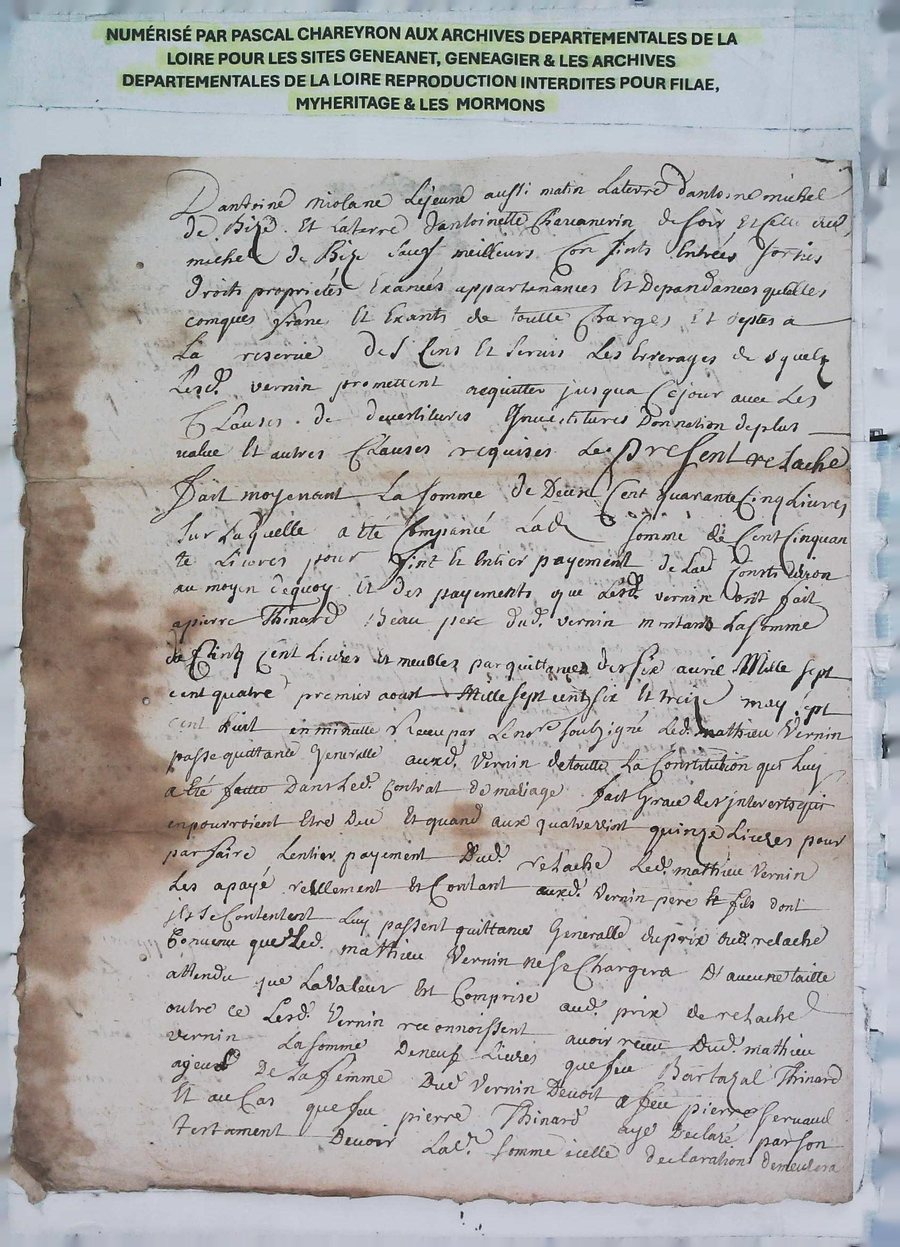 NUMÉRISÉ PAR PASCAL CHAREYRON AUX ARCHIVES DEPARTEMENTALES DE LA
LOIRE POUR LES SITES GENEANET, GENEAGIER & LES ARCHIVES
DEPARTEMENTALES DE LA LOIRE REPRODUCTION INTERDITES POUR FILAE,
MYHERITAGE & LES MORMONS
Dantoine nicolane Lejeune aussi matin Laterre dantoine michel
de Bize Et Laterre dantoinette de soir Et celle dud.
michel de Bize sauf meilleurs Confints Entrées sorties
droits proprietés Exancés appartenances Et Depandances quelles
comques franc Et Exants de toutte Charges Et deptes a
La reserve Des Cens Et servis Les Errerages de squelz
Lesd. vernin promettent aquitter jusqua Cejour avec Les
Clauses de devertitures Jnvestitures Donnation deplus
value Et autres Clauses requises Le present relache
fait moyenant La somme de Deux Cent quarante Cinq Livres
sur Laquelle a été Compancé Lad. somme de Cent Cinquan
te Livres pour fint Et Entier payement de Lad.
au moyen dequoy Et des payements que Lesd. vernin ont fait
apierre Thinard beau pere dud. vernin montant La somme
de Cinq Cent Livres Et meubles par quittances des six avril Mille sept
cent quatre premier aoust Mille sept cent six Et treize may sept
cent huit en minutte Receu par Le nore. soubzigné Led. mathieu Vernin
passe quittance Generalle auxd. Vernin de toutte La Constitution qui Luy
a été faitte Dans Led. Contrat de mariage fait Grace des jntererts qui
enpourroient Etre Due Et quand aux quatrevint quinze Livres pour
parfaire Lentier payement Dud. relache Led. mathieu Vernin
Les apayé reellement Et Contant auxd. Vernin pere Et fils dont
jls se Contentent Luy passent quittance Generalle du prix dud. relache
Convenu que Led. mathieu Vernin ne se Chargera D'aucune taille
attendu que La Valeur Est Comprise aud. prix de relache
outre ce Lesd. Vernin reconnoissent avoir receu Dud. mathieu
vernin La somme De neuf Livres que feu Bartazal Thinard
ageul De La femme Dud. Vernin Devoit a feu pierre servaud
Et au Cas que feu pierre Thinard aye Declaré par son
testament Devoir Lad. somme icelle declaration demeulera